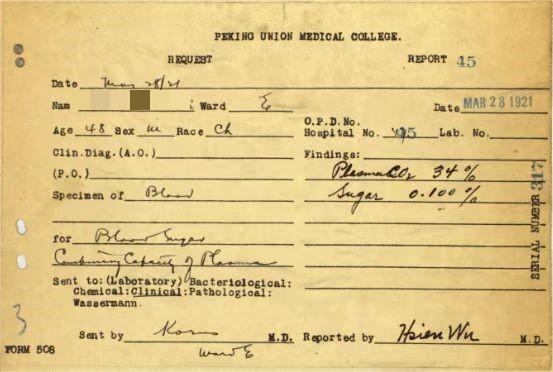 PEKING UNION MEDICAL COLLEGE.
REQUEST
REPORT 45
Date Mar 28/21
Nam Ward E
Date MAR 28 1921
Age 48 Sex M Race Ch
O.P.D.No.
Hospital No. 45 Lab. No.
Clin.Diag.(A.O.)
Findings:
(P.O.)
Plasma CO2 34 %
Specimen of Blood
Sugar 0.100 %
for Blood Sugar
Combining Capacity of Plasma
Sent to:(Laboratory) Bacteriological:
Chemical:Clinical:Pathological:
Wassermann.
SERIAL NUMBER 317
3
Sent by M.D.
Ward E
Reported by Hsien Wu M.D.
FORM 508